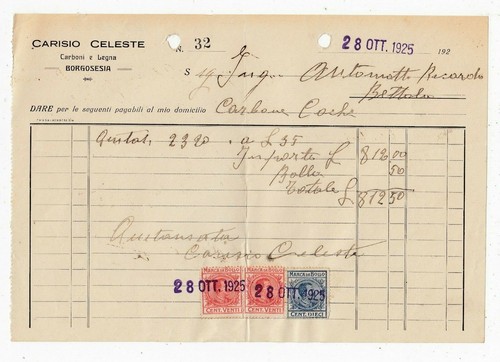 CARISIO CELESTE
Carboni e Legna
BORGOSESIA
N. 32
28 OTT. 1925 192
S
DARE per le seguenti pagabili al mio domicilio Carbone Coche
Quintali 23 20 a £ 35
Importo £ 812 00
Bollo 50
Totale £ 812 50
Quietanzata
Carisio Celeste
MARCA DA BOLLO MARCA DA BOLLO MARCA DA BOLLO
28 OTT. 1925 28 OTT. 1925
CENT. VENTI CENT. VENTI CENT. DIECI